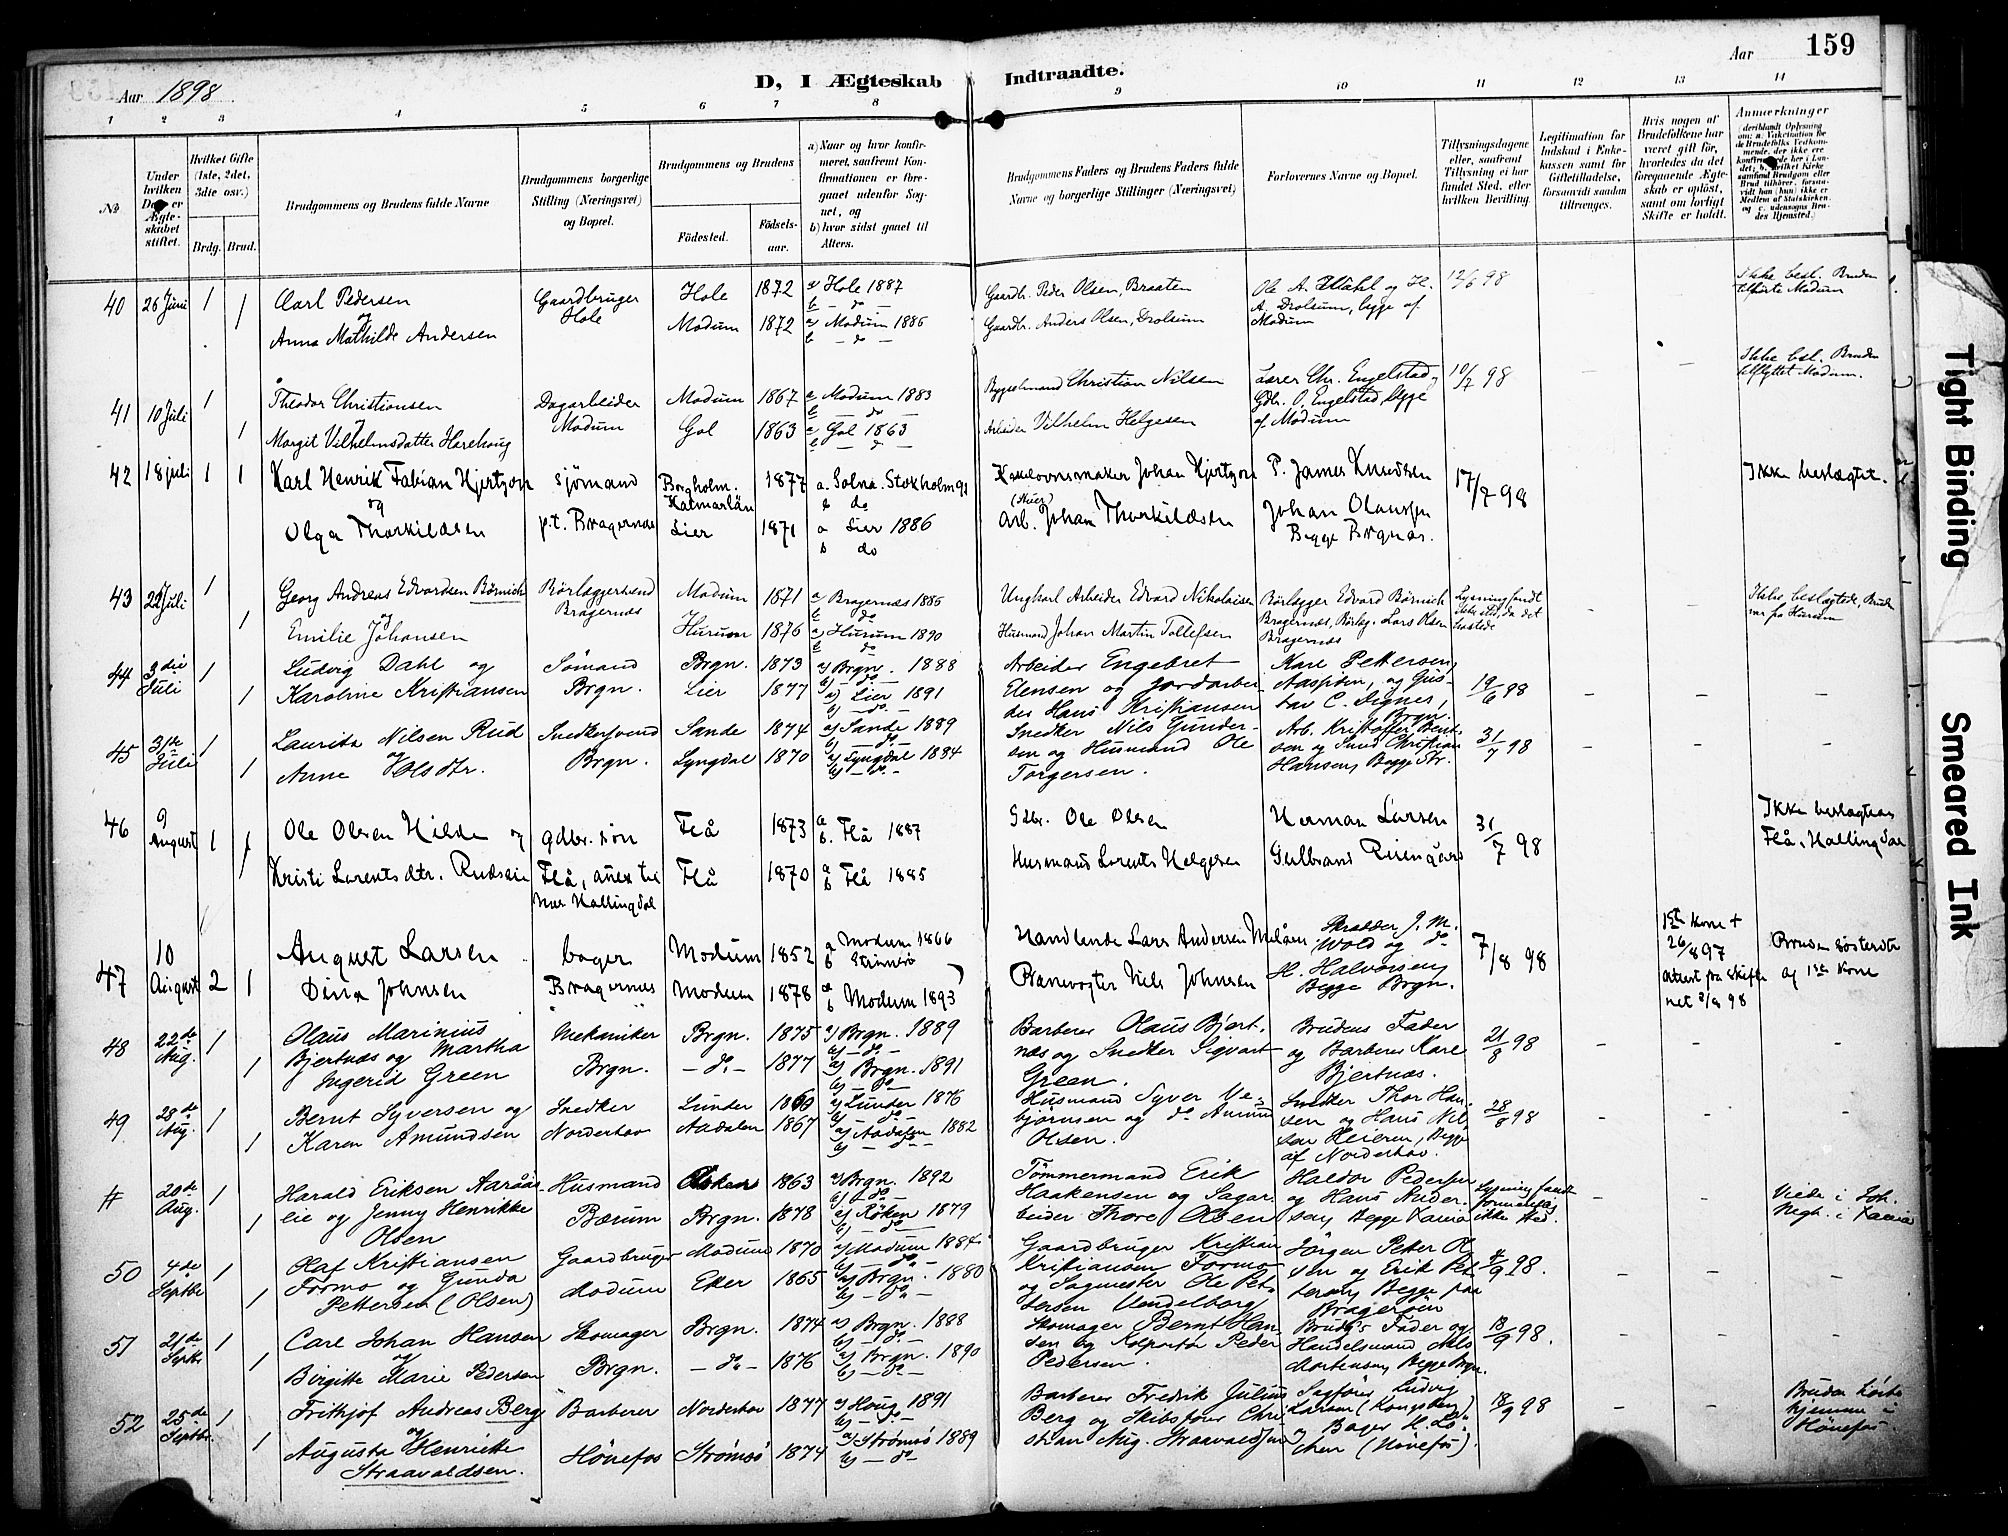 159
Aar 1898
D, I Ægteskab Indtraadte.
Aar
1 2 3 4 5 6 7 8 9 10 11 12 13 14
№
Under hvilken Dato er Ægteskabet stiftet.
Hvilket Gifte (1ste, 2det, 3die osv.)
Brdg. Brud.
Brudgommens og Brudens fulde Navne
Brudgommens borgerlige Stilling (Næringsvei) og Bopæl.
Brudgommens og Brudens
Fødested. Fødselsaar.
a) Naar og hvor konfirmeret, saafremt Konfirmationen er foregaaet udenfor Sognet, og
b) hvor sidst gaaet til Alters.
Brudgommens Faders og Brudens Faders fulde Navne og borgerlige Stillinger (Næringsvei)
Forlovernes Navne og Bopæl.
Tillysningsdagene eller, saafremt Tillysning ei har fundet Sted, efter hvilken Bevilling.
Legitimation for Indskud i Enkekassen samt for Giftetilladelse, forsaavidt saadan tiltrænges.
Hvis nogen af Brudefolkene har været gift før, hvorledes da det foregaaende Ægteskab er opløst, samt om lovligt Skifte er holdt.
Anmærkninger
40 26 Juni 1 Carl Pedersen Gaardbruger Hole 1872 a) Hole 1887 Gaardb. Peder Olsen, Braaten 12/6 98 Ikke besl. Bruden
og Hole b - do
1 Anna Mathilde Andersen Modum 1872 a) Modum 1886 Gaardb. Anders Olsen, Drolsum A. Drolsum, begge af
b - do - Modum
41 10 Juli 1 Theodor Christiansen Dagarbeider Modum 1867 a Modum 1883 Christian Nilsen Lærer Chr. Engelstad, 10/7 98 Ikke besl. Bruden
Modum b - do O. Engelstad, begge tilflyttet Modum.
1 Margit Vilhelmsdatter Gol 1863 a Gol 1863 Arbeider Vilhelm Helgesen af Modum
42 18 juli 1 1 Karl Henrik Fabian Hjertzon sjömand Borgholm. 1877 a. Solna. Stokholms Kakkelovnsmaker Johan Hjertzon P. James Knudsen 17/7 98 Ikke beslægtet.
og Kalmarlän b do
Olga Thorkildsen p.t. Bragernes Lier 1871 a Lier 1886 Arb. Johan Thorkildsen Johan Olaussen
b do Begge Brgnæs.
43 22 Juli 1 Georg Andreas Edvardsen Börnich Rörlæggersvend Modum 1871 a) Bragernæs 1886 Ungkarl Arbeider Edvard Nikolaisen Rörlægger Edvard Börnich Lysning fandt Ikke beslægtede, Brud
og Bragernæs b do Bragernæs, Rörlæg. Lars Olsen ikke sted, da det
1 Emilie Johansen Hurum 1876 a) Hurum 1890 Husmand Johan Martin Tollefsen Bragernæs hastede
44 3die Juli 1 Ludvig Dahl og Sömand Brgn. 1873 a) Brgn. 1888 Arbeider Engebret Karl Pettersen,
b) - do -
1 Karoline Kristiansen Brgn. Lier 1877 a) Lier 1891 Elensen og Jordarbei- Aaspden, og Gus- 19/6 98
b) - do - der Hans Kristiansen tav C. Signes, Brgn.
45 31te Juli 1 Laurits Nilsen Rud Snedkersvend Sande 1874 a) Sande 1889 Snedker Nils Gunder- Arb. Kristoffer Bent- 31/7 98
b) - do - sen og Husmand Ole sen og Sned. Christian
1 Anne Olsdtr. Brgn. Lyngdal 1870 a) Lyngdal 1884 Torgersen. Hansen, Begge Str.
b) - do -
46 9 August 1 1 Ole Olsen Hilde og gdbr. sön Flå 1873 a b. Flå 1887 Gdbr. Ole Olsen Herman Larsen 31/7 98 Ikke beslægtede
Flå, Hallingdal
Kristi Lorentsdtr. Rudseie Flå, anex til Flå 1870 a b Flå 1885 Husmand Lorents Helgesen Gulbrand
Næs Hallingdal
47 10 August 2 1 August Larsen bager Modum 1852 a Modum 1866 Handlende Lars Andersen Skrædder J. M. 7/8 98 1ste Kone + Bruden Sösterdtr
b Strömsö Wold og do 26/8 97 af 1ste Kone
Dina Johnsen Bragernæs Modum 1878 a b Modum 1893 Banevogter Nils Johnsen H. Halvorsen, attest fra skifte
Begge Brgn. net 2/8 98
48 22de Aug. 1 Olaus Marinius Mekaniker Brgn. 1875 a) Brgn. 1889 Barberer Olaus Bjert- Brudens Fader 21/8 98
Bjertnæs og Martha b) - do - næs og Snedker Sigvart og Barberer Karl
1 Ingerid Green Brgn. - do - 1877 a) Brgn. 1891 Green. Bjertnæs.
b) - do -
49 28de Aug. 1 Bernt Syversen og Snedker Lunder 1860 a) Lunder 1876 Husmand Syver Ve- Snedker Thor Han- 28/8 98
b) do björnsen og do Amund sen og Hans Nil-
1 Karen Amundsen Norderhov Aadalen 1867 a) Aadalen 1882 Olsen. sen Heieren, Begge
b) - do - af Norderhov.
# 20de Aug. 1 Harald Eriksen Husmand Asker 1863 a) Brgn. 1892 Tömmermand Erik Haldor Pedersen Lysning fandt Viede i Joh.
b) - do - Haakensen og Sagar- og Hans Ander-
1 lie og Jenny Henrikke Bærum Brgn. 1878 a) Röken 1879 beider Thore Olsen sen, Begge ikke Sted.
Olsen b) - do -
50 4de Septbr 1 Olaf Kristiansen Gaardbruger Modum 1870 a) Modum 1884 Gaardbruger Kristian Jörgen Petter Ol- 4/9 98.
b) - do - Kristiansen Formo sen og Erik Pet-
1 Formo og Gunda Modum Eker 1865 a) Brgn. 1880 og Sagmester Ole Pet- tersen, Begge paa
Pettersen (Olsen) b) - do - tersen Vendelborg Brageröen
51 21de Septbr 1 Carl Johan Hansen Skomager Brgn. 1874 a) Brgn. 1888 Skomager Bernt Han- Brudg's Fader og 18/9 98.
og b) - do - sen og Kolportör Peder Handelsmand Nils
1 Birgitte Marie Pedersen Brgn. - do - 1876 a) Brgn. 1890 Pedersen. Mortensen, Begge Brgn.
b) - do -
52 25de Septbr. 1 Frithjof Andreas Berg Barberer Norderhov 1877 a) Houg 1891 Barberer Fredrik Julius Sagförer Ludvig 18/9 98 Bruden
og b) - do - Berg og Skibsförer Chri- Larsen (Kongsberg) hjemme i
1 Augusta Henriette Hönefos Strömsö 1874 a) Strömsö 1889 stian Aug. Straavaldsen og Bager H. Lö- Hönefos
Straavaldsen. b) - do - chen (Hönefos).
Tight Binding
Smeared Ink